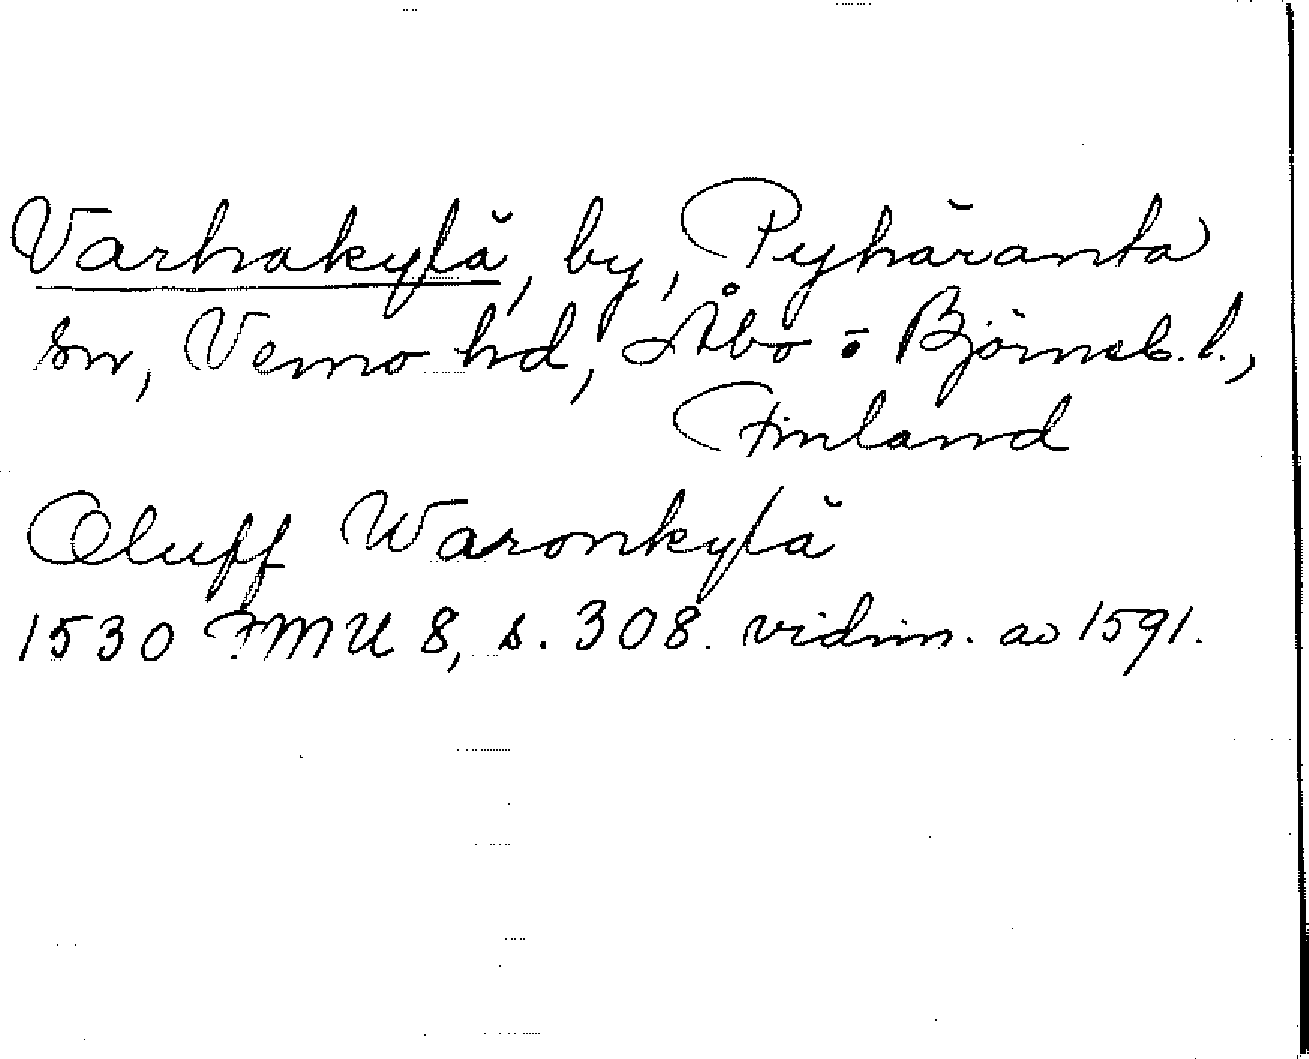 Varhokylä, by, Pyhäranta
sn, Vemo hd, Åbo o Björneb. l.,
Finland
Oluff Waronkylä
1530 FMU 8, s. 308. vidim. av 1591.